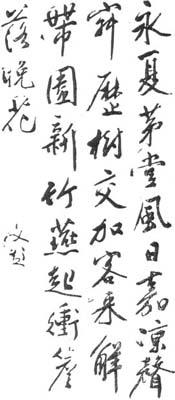 永夏茅堂風日嘉涼聲
寂歷樹交加客來解
帶圍新竹燕起衝簷
落晚花
文彭